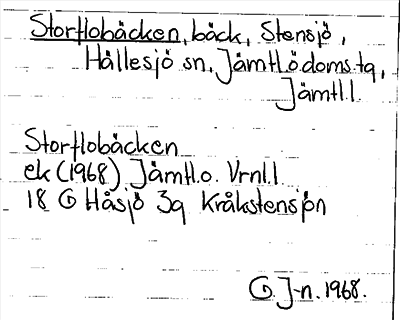 Storflobäcken, bäck, Stensjö,
Hällesjö sn, Jämtl.ö.doms.tg,
Jämtl.l.
Storflobäcken
ek (1968) Jämtl.o. Vrnl.l
18 G Håsjö 3g Kråkstensjön
G. J-n. 1968.